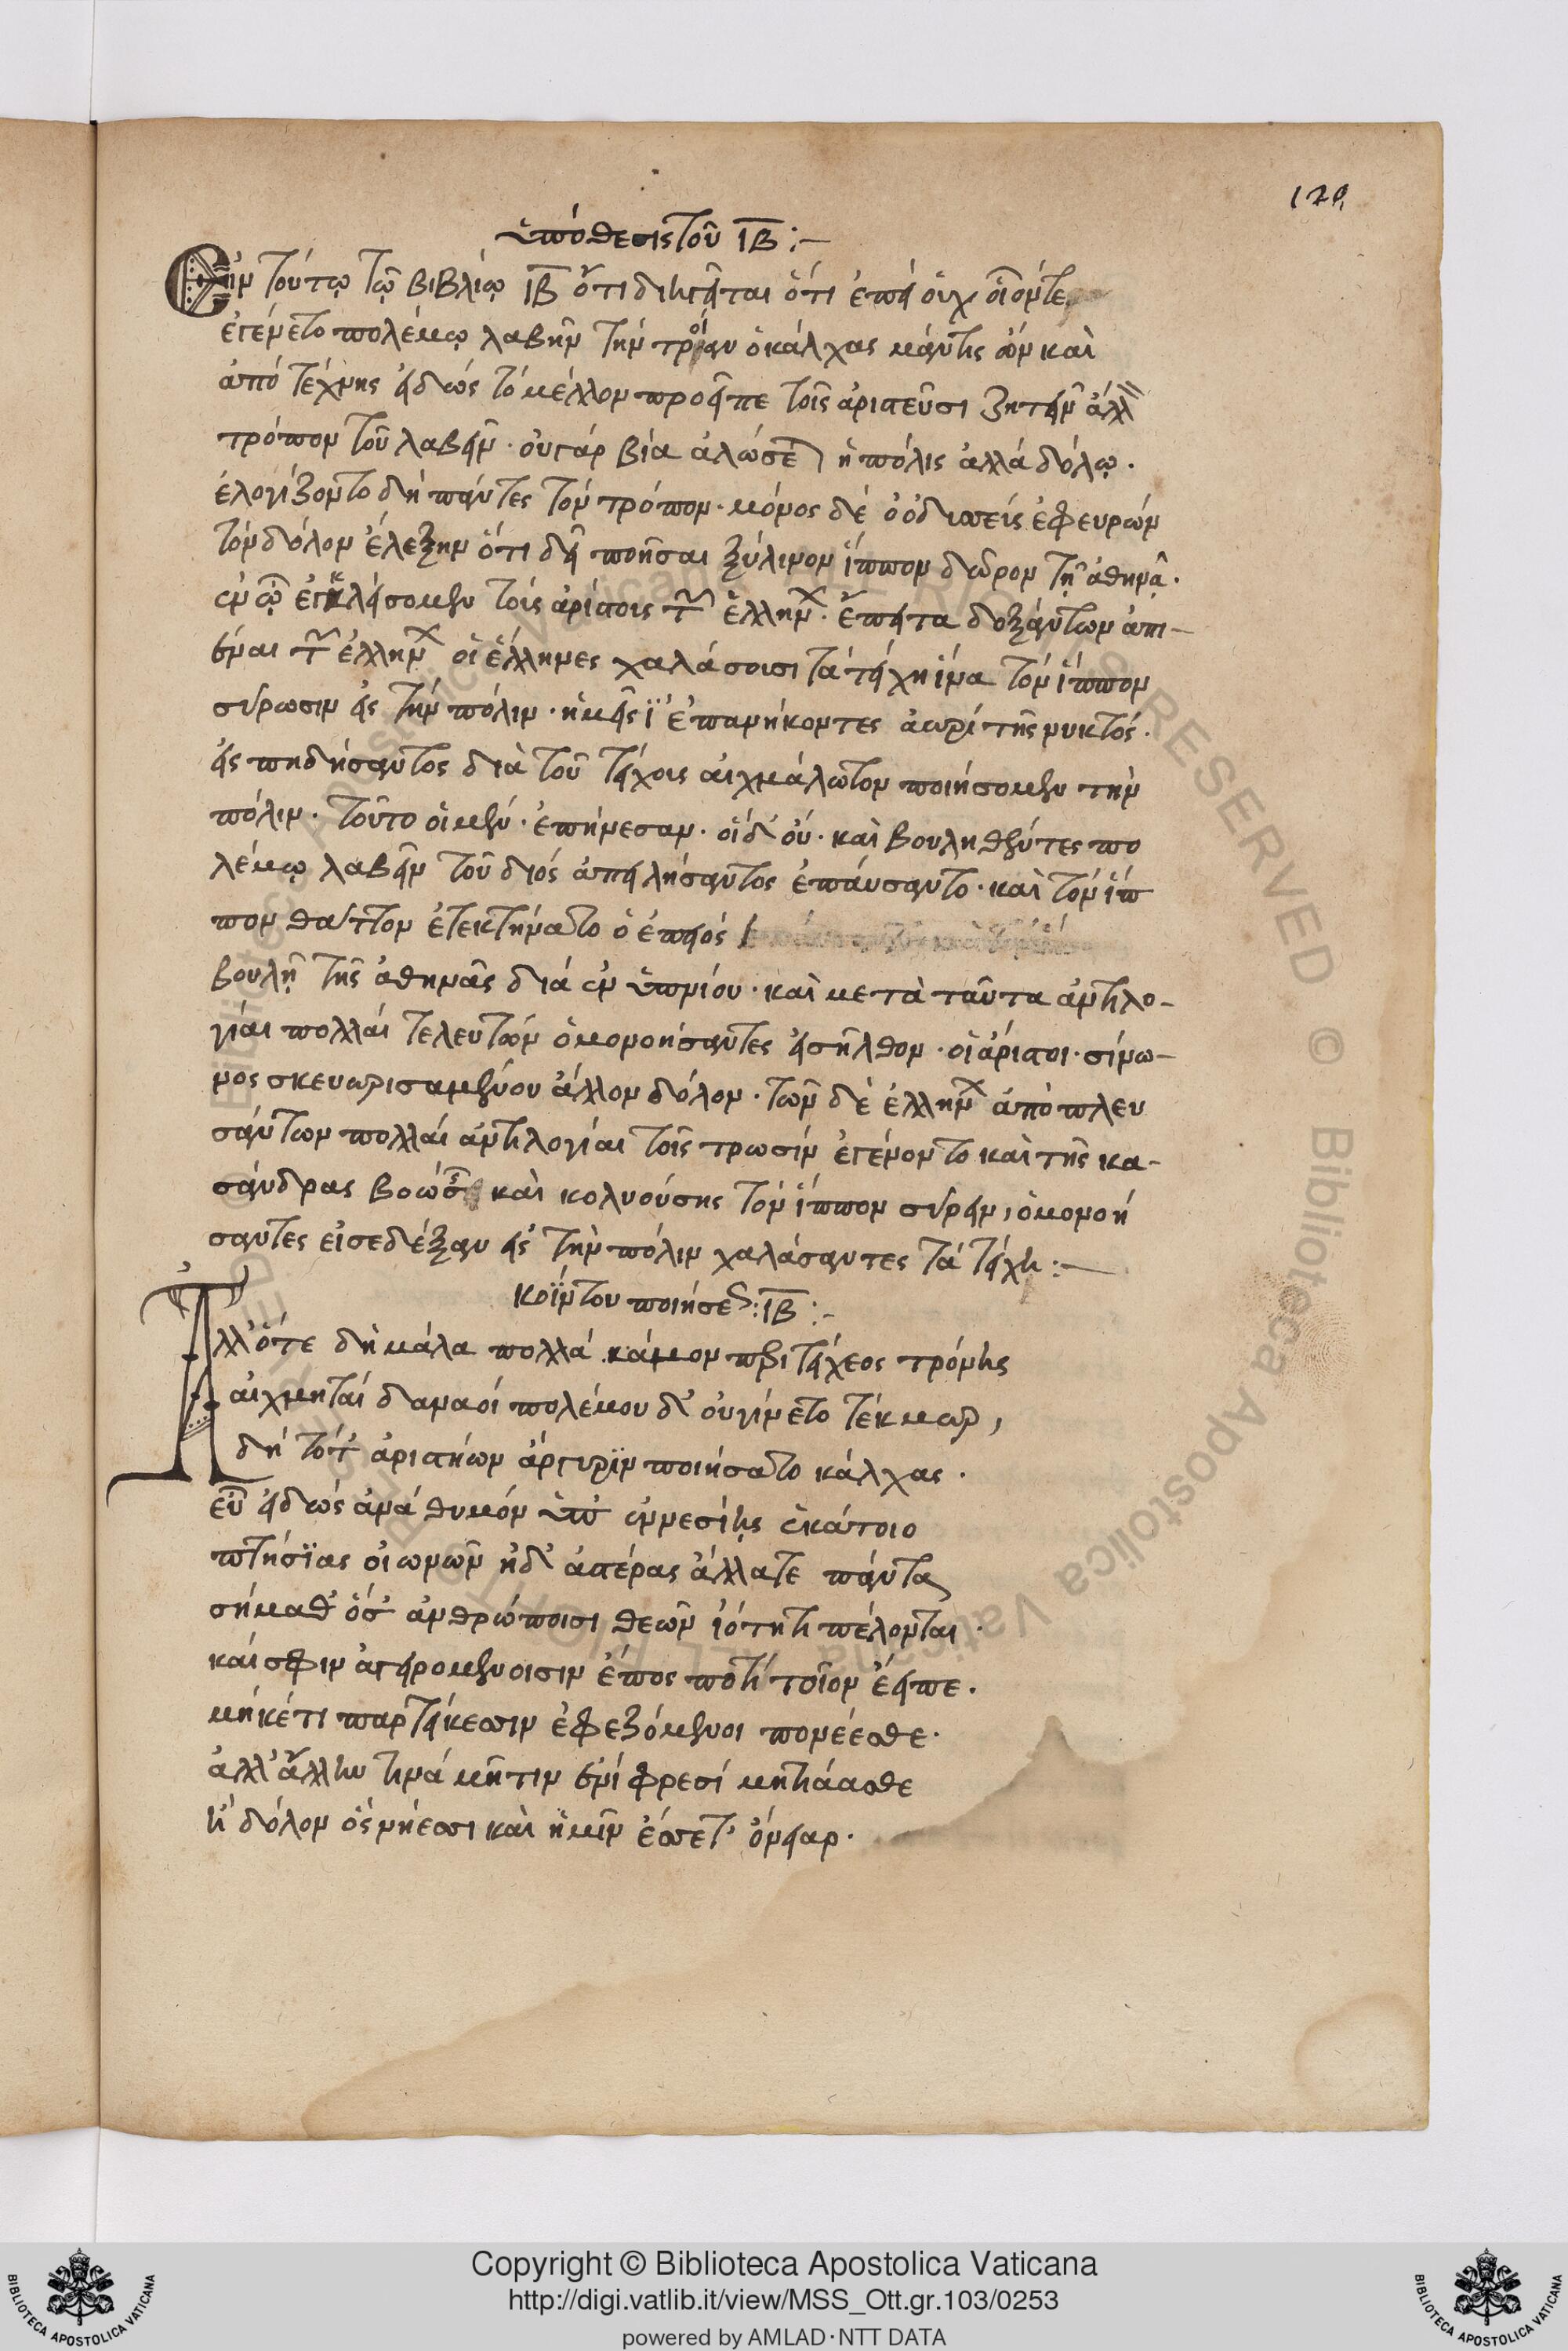 120
ὑπόθεσις τοῦ ΙΒ :–
Ἐν τούτῳ τῷ βιβλίῳ ΙΒ ὅτι διηγεῖται ὅτι ἐπεὶ οὐχ οἷόν τε
ἐγένετο πολέμῳ λαβεῖν τὴν τροίαν ὁ κάλχας μάντις ὢν καὶ
ἀπὸ τέχνης εἰδὼς τὸ μέλλον προεῖπε τοῖς ἀριστεῦσι ζητεῖν ἀλλ
τρόπον τοῦ λαβεῖν · οὐ γὰρ βία ἁλώσεται ἡ πόλις ἀλλὰ δόλῳ ·
ἐλογίζοντο δὴ πάντες τὸν τρόπον · μόνος δὲ ὁ ὀδυσσεὺς ἐφευρὼν
τὸν δόλον ἔλεξην ὅτι δεῖ ποιῆσαι ξύλινον ἵππον δῶρον τῇ ἀθηνᾷ ·
ἐν ᾧ ἐγκλείσομεν τοὺς ἀρίστους τῶν ἑλλήνων · ἔπειτα δοξάντων ἀπι–
έναι τῶν ἑλλήνων οἱ ἕλληνες χαλάσουσι τὰ τείχη ἵνα τὸν ἵππον
σύρωσιν εἰς τὴν πόλιν · ἡμεῖς ἐπανήκοντες ἀωρὶ τῆς νυκτός ·
εἰς πηδήσαντος διὰ τοῦ τείχους αἰχμάλωτον ποιήσομεν τὴν
πόλιν · τοῦτο οἱ μὲν · ἐπήνεσαν · οἱ δ' οὔ · καὶ βουληθέντες πο
λέμῳ λαβεῖν τοῦ διὸς ἀπειλήσαντος ἐπαύσαντο · καὶ τὸν ἵπ
πον θᾶττον ἐτεκτήνατο ὁ ἐπειὸς
βουλῇ τῆς ἀθηνᾶς διὰ ἐνυπνίου · καὶ μετὰ ταῦτα ἀντιλο–
γίαι πολλαὶ τελευτῶν ὁμονοήσαντες εἰσῆλθον · οἱ ἄριστοι · σίνω–
νος σκευωρισαμένου ἄλλον δόλον · τῶν δὲ ἑλλήνων ἀποπλευ
σάντων πολλαὶ ἀντιλογίαι τοῖς τρωσὶν ἐγένοντο καὶ τῆς κα–
σάνδρας βοώσης καὶ κολυούσης τὸν ἵππον σύρειν, ὁμονοή
σαντες εἰσεδέξαν εἰς τὴν πόλιν χαλάσαντες τὰ τείχη :–
κοΐντου ποιήσεως : ΙΒ :–
Ἀλλ' ὅτε δὴ μάλα πολλὰ κάμον περὶ τείχεος τροίης
αἰχμηταὶ δαναοὶ πολέμου δ' οὐ γίνετο τέκμωρ,
δὴ τότ' ἀριστήων ἄργυριν ποιήσατο κάλχας ·
εὖ εἰδὼς ἀνὰ θυμὸν ὑπ' ἐννεσίης ἑκάτοιο
πτήσϊας οἰωνῶν ἠδ' ἀστέρας ἄλλά τε πάντα
σήμαθ' ὅσ' ἀνθρώποισι θεῶν ἰότητι πέλονται ·
καὶ σφιν ἀγειρομένοισιν ἔπος ποτὶ τοῖον ἔειπε ·
μηκέτι παρ τείχεσσιν ἐφεζόμενοι πονέεσθε ·
ἀλλ' ἄλλην τινὰ μῆτιν ἐνὶ φρεσὶ μητιάασθε
ἠὲ δόλον ὃς νήεσσι καὶ ἡμῖν ἔσσετ' ὄνειαρ ·
Copyright © Biblioteca Apostolica Vaticana
http://digi.vatlib.it/view/MSS_Ott.gr.103/0253
powered by AMLAD·NTT DATA